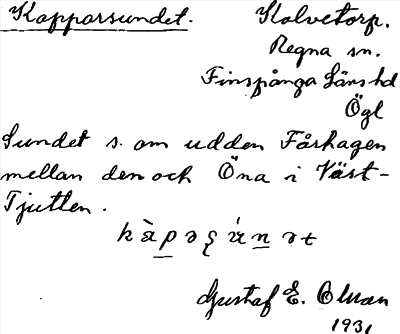 Kapparsundet. Kalvetorp.
Regna sn.
Finspånga Läns hd
Ögl
Sundet s. om udden Fårhagen
mellan den och Öna i Väst-
Tjutten.
Gustaf E.
1931